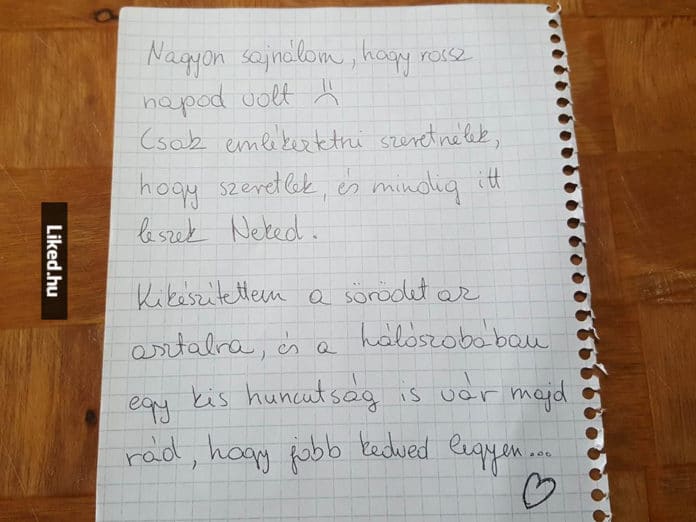 Nagyon sajnálom, hogy rossz
napod volt :(
Csak emlékeztetni szeretnélek,
hogy szeretlek, és mindig itt
leszek Neked.
Kikészítettem a sörödet az
asztalra, és a hálószobában
egy kis huncutság is vár majd
rád, hogy jobb kedved legyen...
♡
Liked.hu